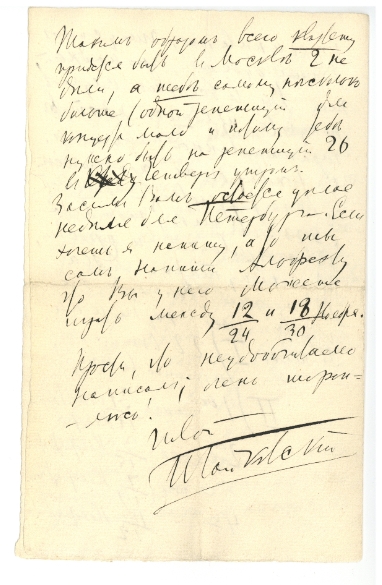 Такимъ образомъ всего квартету
придется быть въ Москвѣ 2 не
дѣли, а тебѣ самому несколько
больше (одной репетиціи для
концерта мало и потому тебѣ
нужно быть на репетиціи 26
въ четвергъ утромъ.
Засимъ Вамъ остается целая
неделя для Петербурга. Если
хочешь я напишу, а то ты
самъ напиши
что Вы у него можете
играть между 12/24 и 18/30 Ноября.
Прости, что неудобочитаемо
написалъ; очень тороп-
-люсь!
Твой
П. Чайковскій